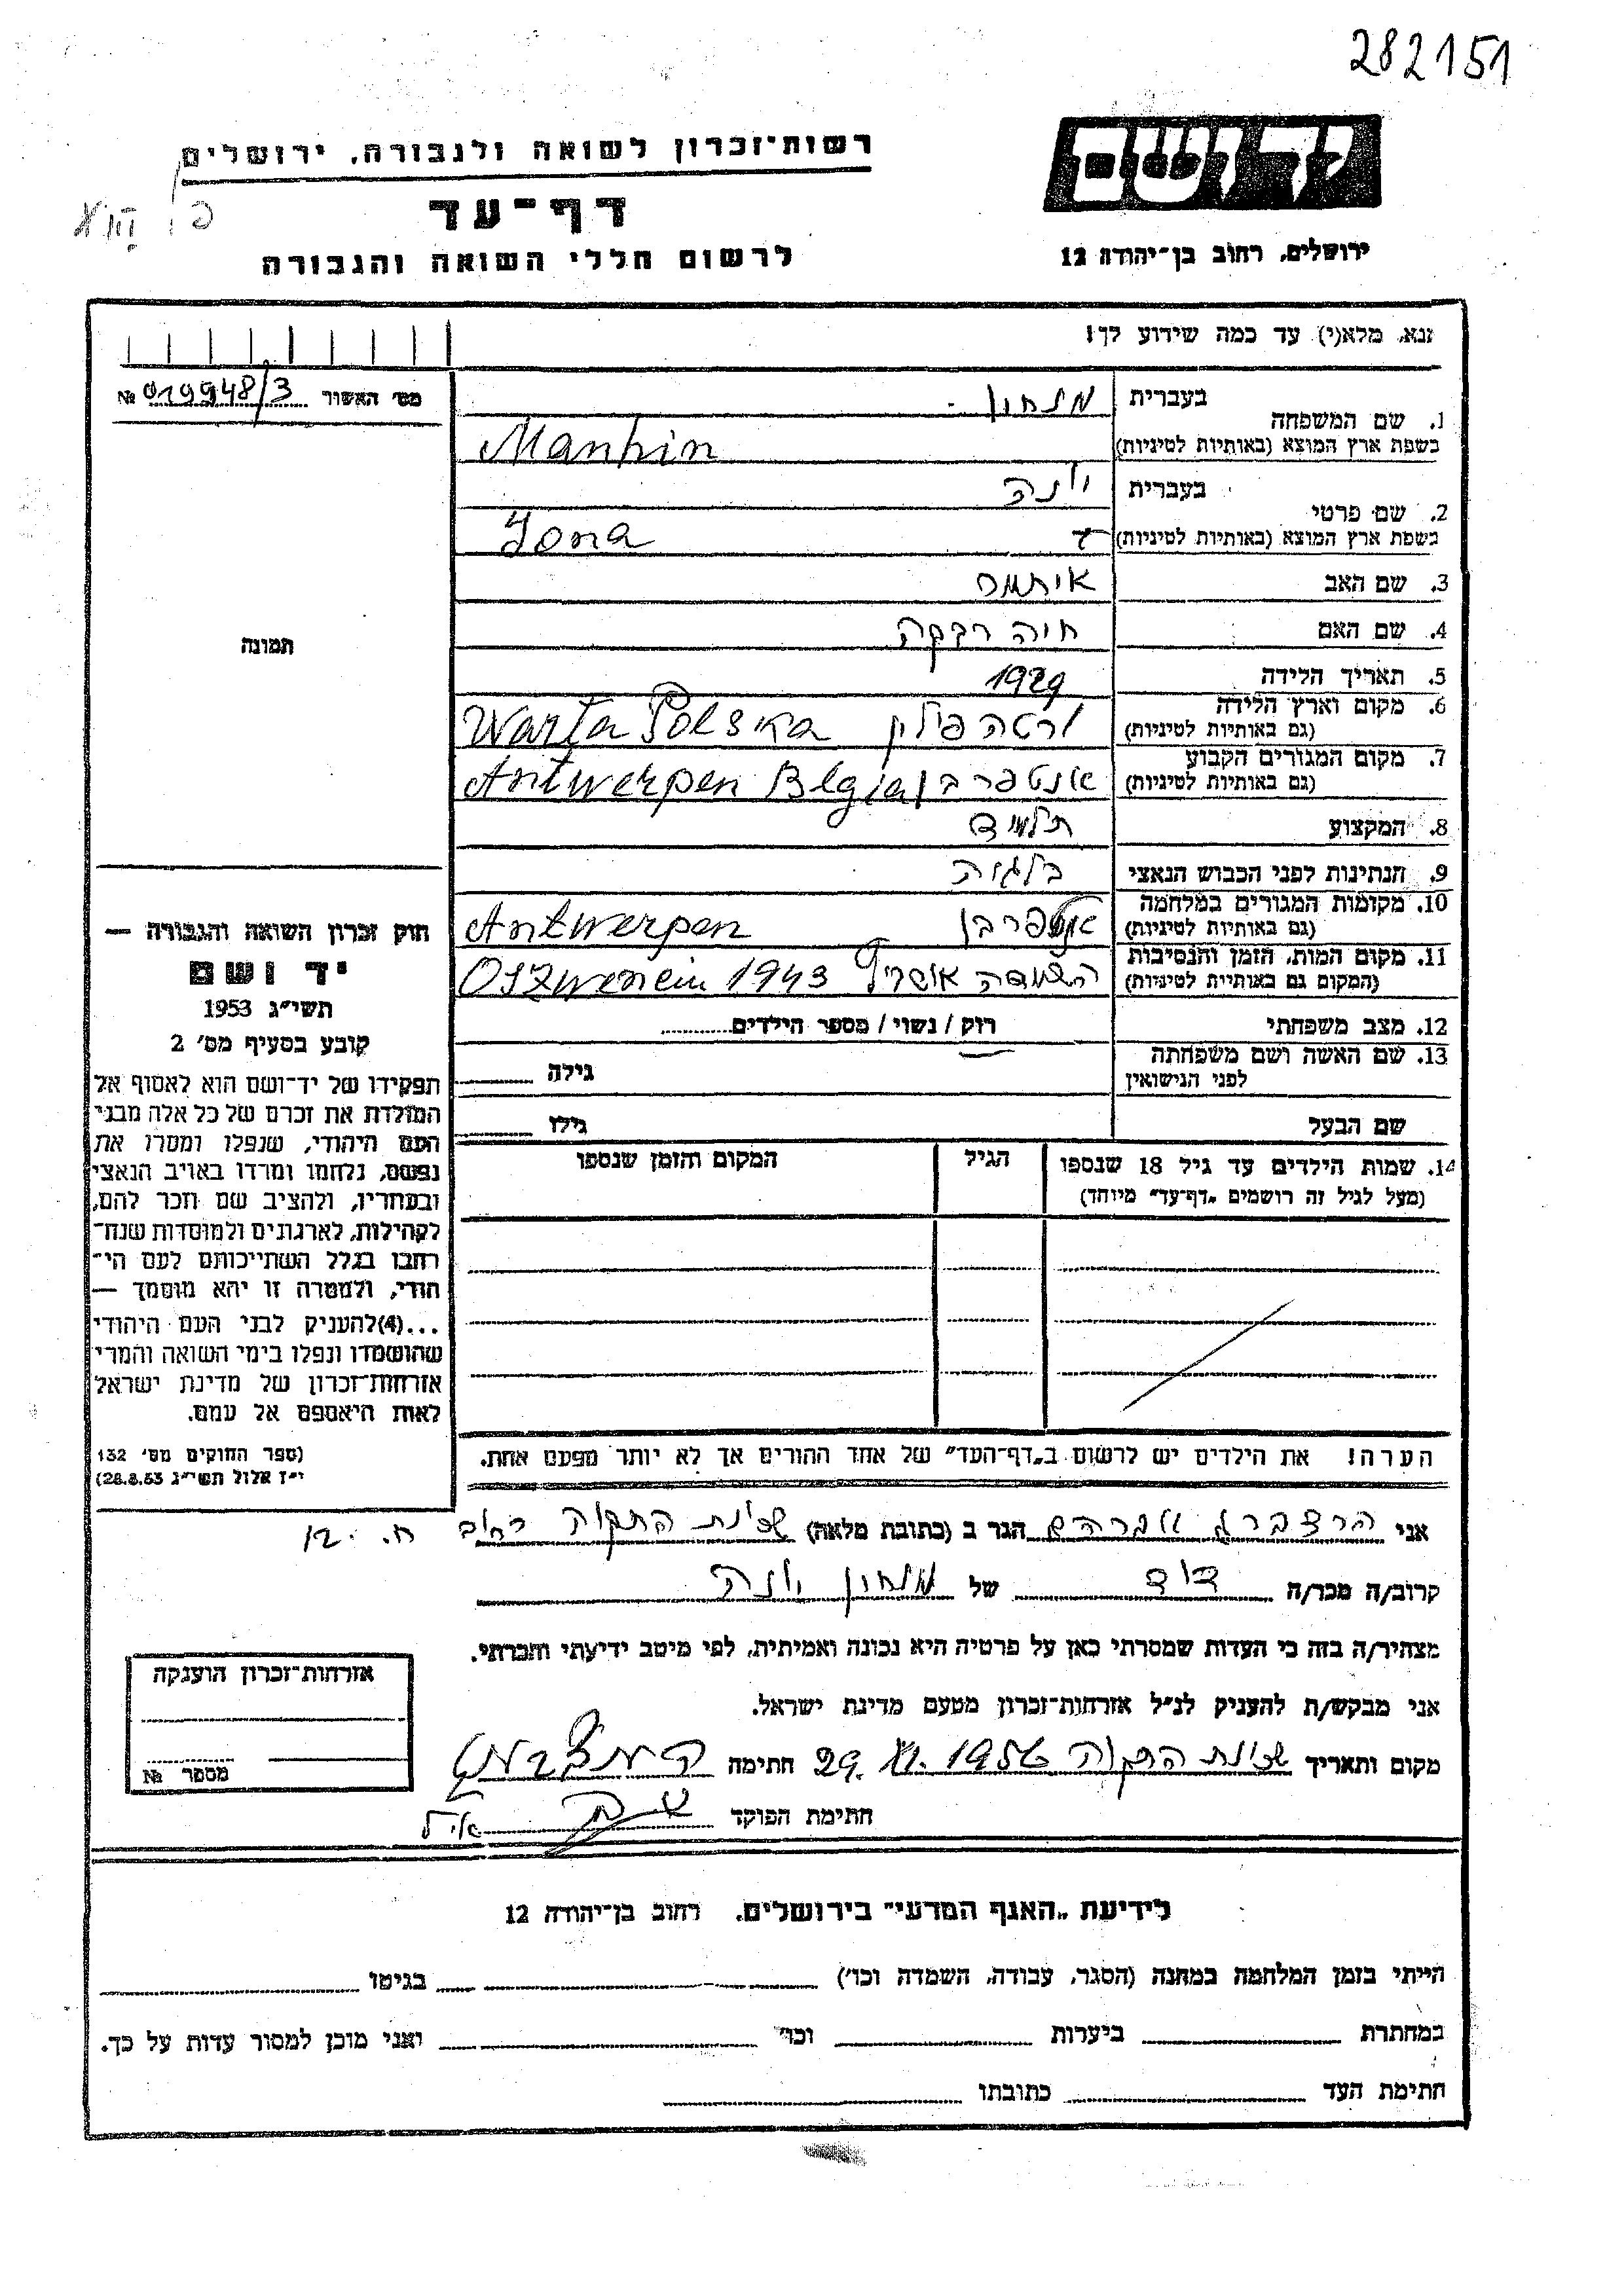 282151
יד ושם
ירושלים, רחוב בן־יהודה 12
רשות־זכרון לשואה ולגבורה, ירושלים
דף־עד
לרשום חללי השואה והגבורה
נא, מלא(י) עד כמה שידוע לך!
מס׳ האשור № 019948/3
תמונה
1. שם המשפחה
בעברית מנחון
בשפת ארץ המוצא (באותיות לטיניות) Manhin
2. שם פרטי
בעברית יונה
בשפת ארץ המוצא (באותיות לטיניות) Jona
3. שם האב איתמר
4. שם האם חיה רבקה
5. תאריך הלידה 1929
6. מקום וארץ הלידה
(גם באותיות לטיניות) ורטה פולין Warta Polska
7. מקום המגורים הקבוע
(גם באותיות לטיניות) אנטפרבן Antwerpen Blgia
8. המקצוע תלמיד
9. הנתינות לפני הכבוש הנאצי בלגיה
10. מקומות המגורים במלחמה
(גם באותיות לטיניות) אנטפרבן Antwerpen
11. מקום המות, הזמן והנסיבות
(המקום גם באותיות לטיניות) השמדה 1943
12. מצב משפחתי רוק / נשוי / מספר הילדים
13. שם האשה ושם משפחתה
לפני הנישואין גילה
שם הבעל גילו
14. שמות הילדים עד גיל 18 שנספו
(מעל לגיל זה רושמים „דף־עד״ מיוחד)
הגיל
המקום והזמן שנספו
הערה! את הילדים יש לרשום ב„דף־העד״ של אחד ההורים אך לא יותר מפעם אחת.
חוק זכרון השואה והגבורה —
יד ושם
תשי״ג 1953
קובע בסעיף מס׳ 2
תפקידו של יד־ושם הוא לאסוף אל
המולדת את זכרם של כל אלה מבני
העם היהודי, שנפלו ומסרו את
נפשם, נלחמו ומרדו באויב הנאצי
ובעוזריו, ולהציב שם וזכר להם,
לקהילות, לארגונים ולמוסדות שנח־
רחבו בגלל השתייכותם לעם הי־
הודי, ולמטרה זו יהא מוסמך —
...(4)להעניק לבני העם היהודי
שהושמדו ונפלו בימי השואה והמרי
אזרחות־זכרון של מדינת ישראל
לאות היאספם אל עמם.
(ספר החוקים מס׳ 132
י״ז אלול תשי״ג 28.8.53)
אני הרצברג אברהם הגר ב (כתובת מלאה) שכונת התקוה רחוב ח. 12
קרוב/ה מכר/ה דוד של מנחון יונה
מצהיר/ה בזה כי העדות שמסרתי כאן על פרטיה היא נכונה ואמיתית, לפי מיטב ידיעתי והכרתי.
אני מבקש/ת להעניק לנ״ל אזרחות־זכרון מטעם מדינת ישראל.
מקום ותאריך שכונת התקוה 29. XI. 1956 חתימה
חתימת הפוקד
אזרחות־זכרון הוענקה
מספר №
לידיעת „האגף המדעי״ בירושלים, רחוב בן־יהודה 12
הייתי בזמן המלחמה במחנה (הסגר, עבודה, השמדה וכו׳) בגיטו
במחתרת ביערות וכו׳ ואני מוכן למסור עדות על כך.
חתימת העד כתובתו